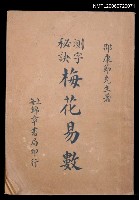 邵康節先生著
測字秘訣
梅花易數
上海錦章書局印行
NMTL20080070696